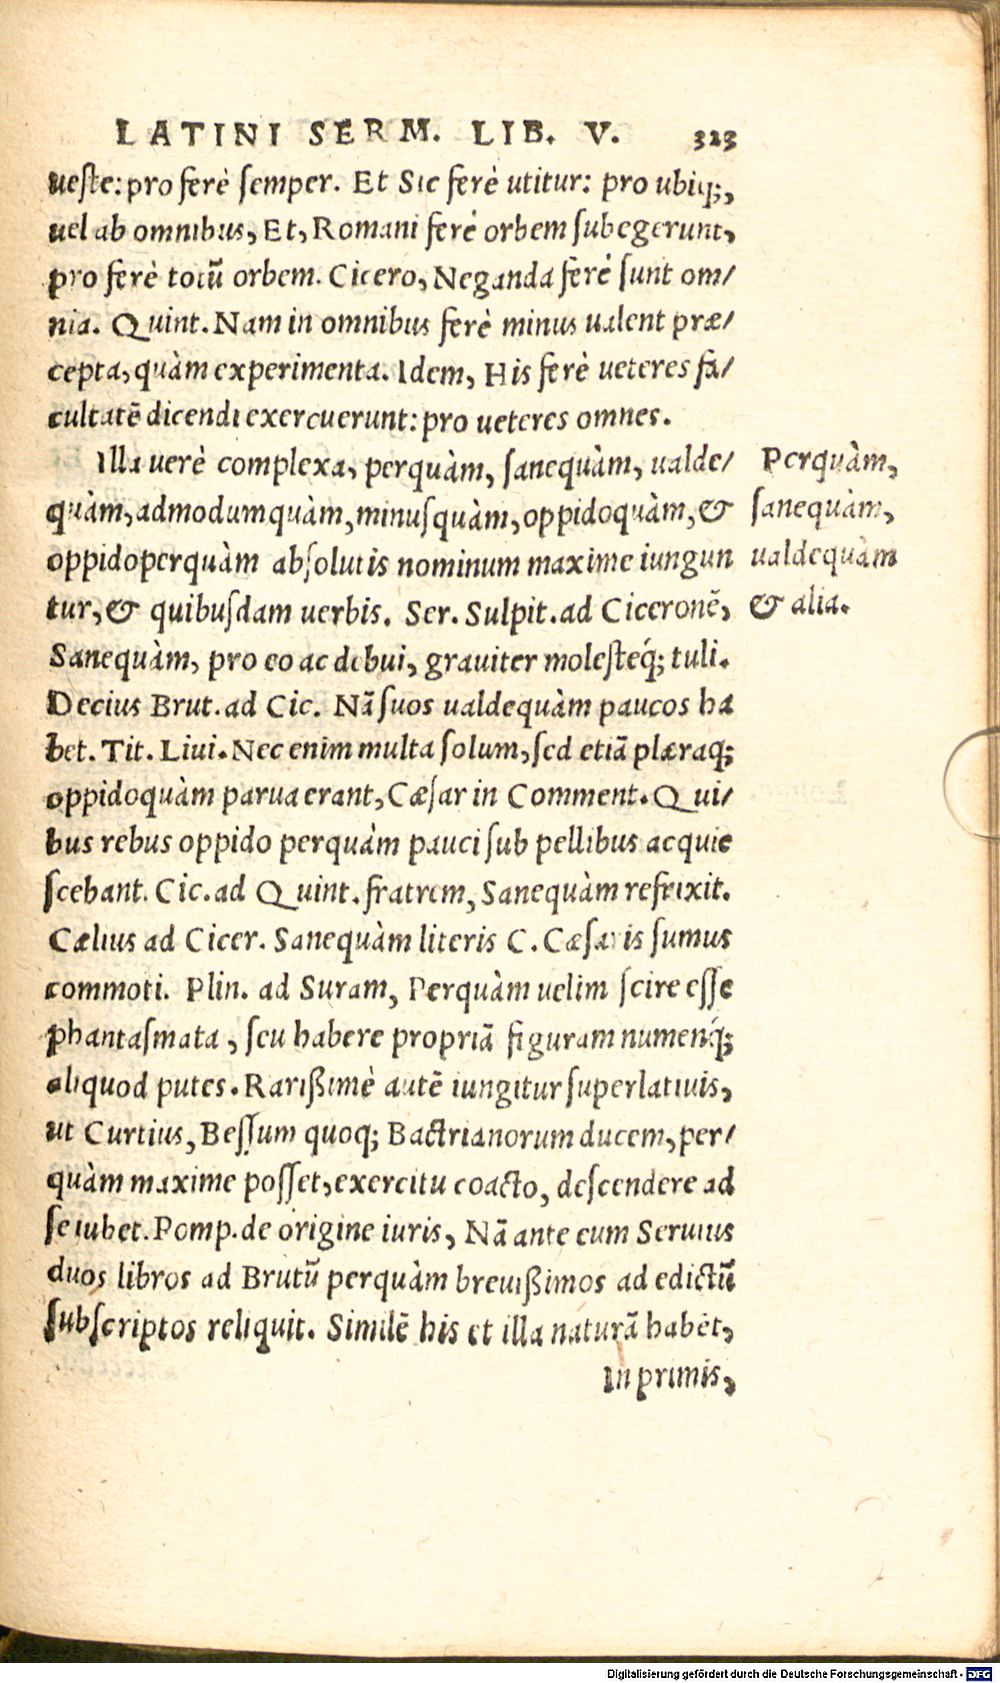 LATINI SERM. LIB. V. 323
ueſte: pro ferè ſemper. Et Sic ferè utitur: pro ubiq;,
uel ab omnibus, Et, Romani ferè orbem ſubegerunt,
pro ferè totũ orbem. Cicero, Neganda ferè ſunt om/
nia. Quint. Nam in omnibus ferè minus ualent præ/
cepta, quàm experimenta. Idem, His ferè ueteres fa/
cultatẽ dicendi exercuerunt: pro ueteres omnes.
Illa uerè complexa, perquàm, ſanequàm, ualde/
quàm, admodumquàm, minuſquàm, oppidoquàm, &
oppidoperquàm abſolutis nominum maxime iungun
tur, & quibuſdam uerbis. Ser. Sulpit. ad Ciceronẽ,
Sanequàm, pro eo ac debui, grauiter moleſteq́; tuli.
Decius Brut. ad Cic. Nã ſuos ualdequàm paucos ha
bet. Tit. Liui. Nec enim multa ſolum, ſed etiã plæraq;
oppidoquàm parua erant, Cæſar in Comment. Qui/
bus rebus oppido perquàm pauci ſub pellibus acquie
ſcebant. Cic. ad Quint. fratrem, Sanequàm refrixit.
Cælius ad Cicer. Sanequàm literis C. Cæſaris ſumus
commoti. Plin. ad Suram, Perquàm uelim ſcire eſſe
phantaſmata, ſeu habere propriã figuram numenq́;
aliquod putes. Rarißimè autẽ iungitur ſuperlatiuis,
ut Curtius, Beſſum quoq; Bactrianorum ducem, per/
quàm maxime poſſet, exercitu coacto, deſcendere ad
ſe iubet. Pomp. de origine iuris, Nã ante eum Seruius
duos libros ad Brutũ perquàm breuißimos ad edictũ
ſubſcriptos reliquit. Similẽ his et illa naturã habēt,
In primis,
Perquàm,
ſanequàm,
ualdequàm
& alia.
Digitalisierung gefördert durch die Deutsche Forschungsgemeinschaft - DFG